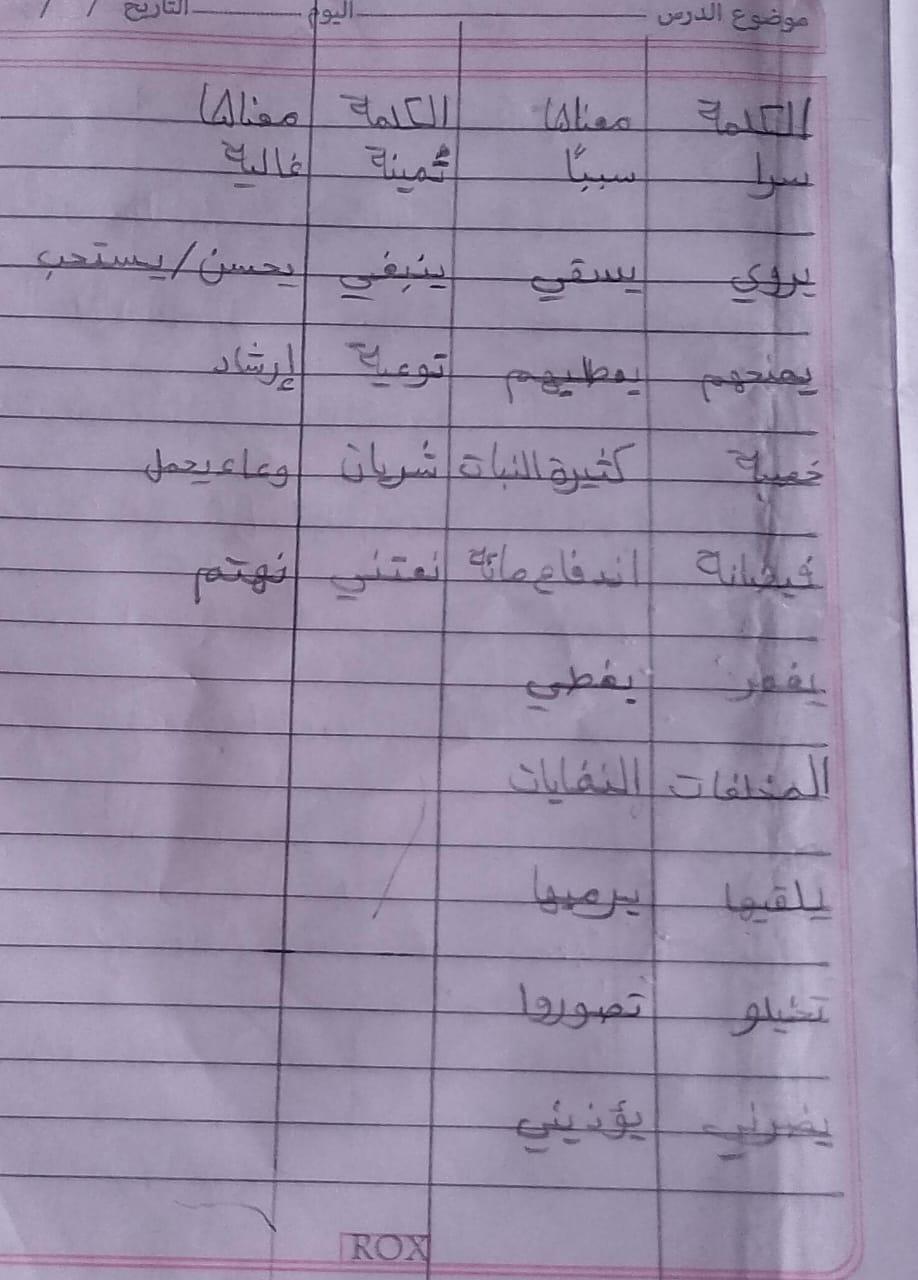 موضوع الدرس اليوم التاريخ / /
الكلمة معناها الكلمة معناها
سرا سببًا ثمينة غالية
يروي يسقي ينبغي يحسن/يستحب
يمنحهم يعطيهم توعية إرشاد
خصبة كثيرة النبات شريان وعاء يحمل
فيضانة اندفاع مائة نعتني نهتم
يغمر يغطي
المخلفات النفايات
يلقيها يرميها
تخيلو تصوروا
يضرني يؤذيني
ROX